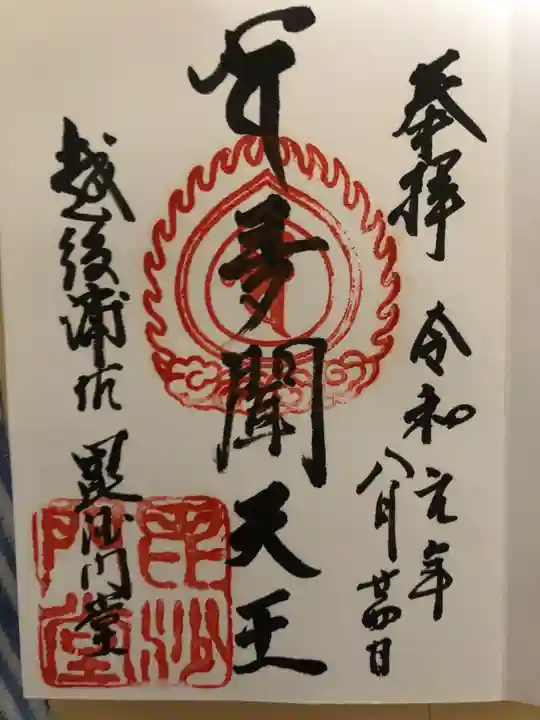 奉拝 令和元年
八月廿四日
多聞天王
越後浦佐 毘沙門堂
毘沙
門堂